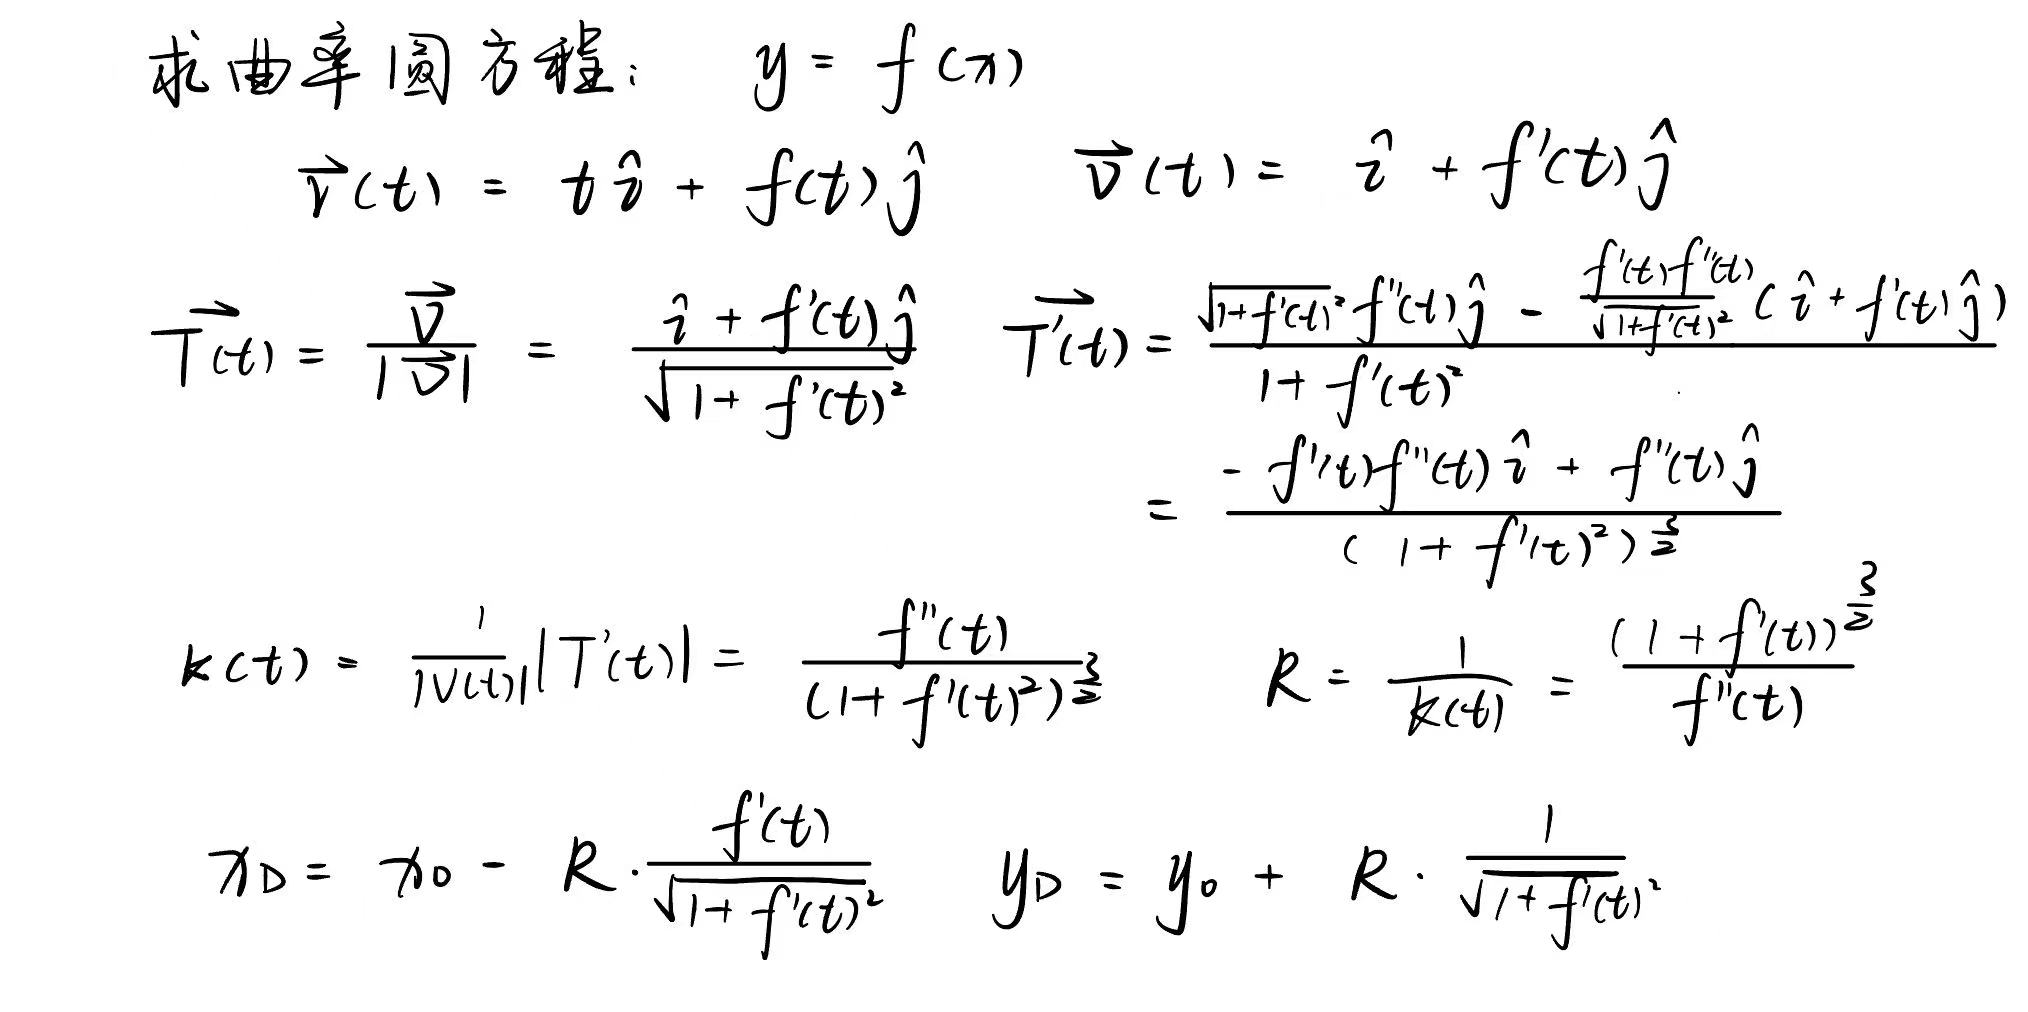 求曲率圆方程: y = f(x)
$\vec{r}(t) = t\hat{i} + f(t)\hat{j}$ $\vec{v}(t) = \hat{i} + f'(t)\hat{j}$
$\overrightarrow{T(t)} = \frac{\vec{v}}{|\vec{v}|} = \frac{\hat{i} + f'(t)\hat{j}}{\sqrt{1+f'(t)^2}}$ $\overrightarrow{T'(t)} = \frac{\sqrt{1+f'(t)^2} f''(t)\hat{j} - \frac{f'(t)f''(t)}{\sqrt{1+f'(t)^2}}(\hat{i} + f'(t)\hat{j})}{1+f'(t)^2}$
$= \frac{-f'(t)f''(t)\hat{i} + f''(t)\hat{j}}{(1+f'(t)^2)^{\frac{3}{2}}}$
$k(t) = \frac{1}{|V(t)|}|T'(t)| = \frac{f''(t)}{(1+f'(t)^2)^{\frac{3}{2}}}$ $R = \frac{1}{k(t)} = \frac{(1+f'(t))^{\frac{3}{2}}}{f''(t)}$
$x_D = x_0 - R \cdot \frac{f'(t)}{\sqrt{1+f'(t)^2}}$ $y_D = y_0 + R \cdot \frac{1}{\sqrt{1+f'(t)^2}}$